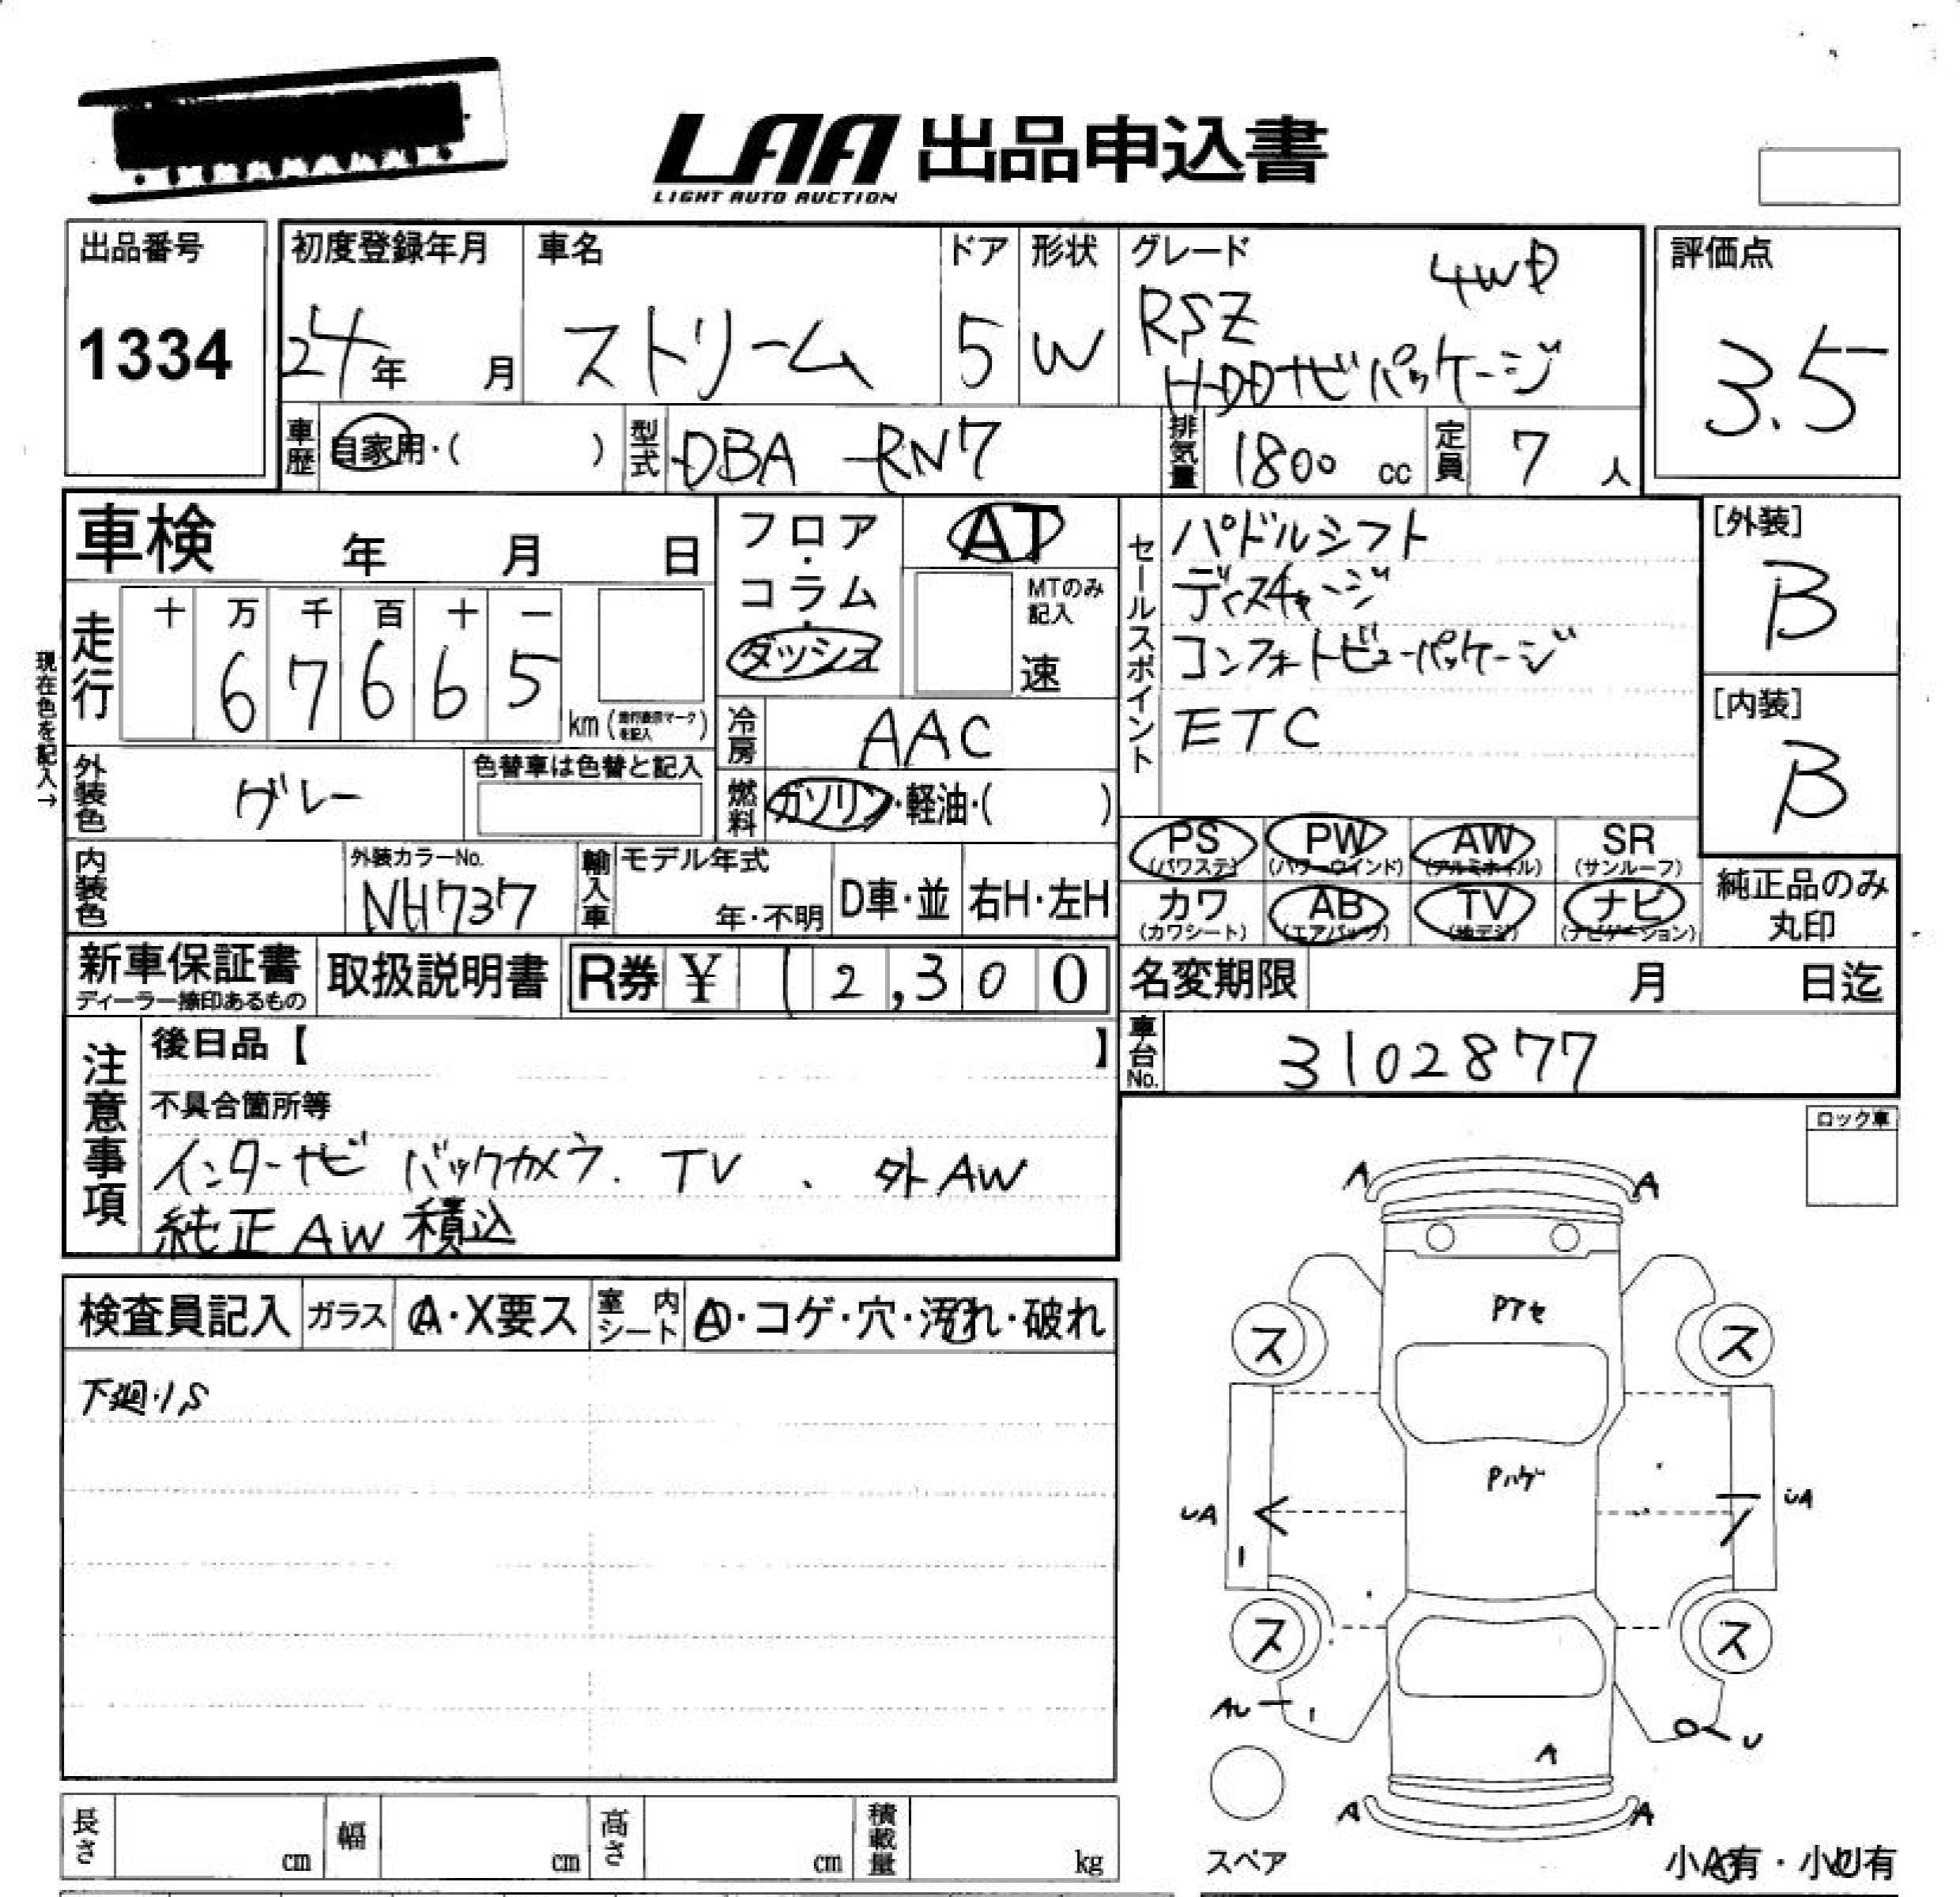 LAA 出品申込書
LIGHT AUTO AUCTION
出品番号
1334
初度登録年月
24年 月
車名
ストリーム
ドア
5
形状
W
グレード
4WD
RSZ
HDDナビパッケージ
評価点
3.5
車歴
自家用・( )
型式
DBA-RN7
排気量
1800 cc
定員
7 人
車検 年 月 日
現在色を記入→
走行
十 万 千 百 十 一
6 7 6 6 5
km
フロア・コラム・ダッシュ
AT
MTのみ記入
速
セールスポイント
パドルシフト
ディスチャージ
コンフォートビューパッケージ
ETC
[外装]
B
[内装]
B
冷房
AAC
燃料
ガソリン・軽油・( )
外装色
グレー
色替車は色替と記入
内装色
外装カラーNo.
NH737
輸入車
モデル年式
年・不明
D車・並
右H・左H
PS (パワステ)
PW (パワーウインド)
AW (アルミホイル)
SR (サンルーフ)
カワ (カワシート)
AB (エアバック)
TV (地デジ)
ナビ (ナビゲーション)
純正品のみ丸印
新車保証書
ディーラー捺印あるもの
取扱説明書
R券 ¥ 12,300
名変期限 月 日迄
車台No.
3102877
注意事項
後日品【 】
不具合箇所等
インターナビ バックカメラ. TV 、 外AW
純正AW積込
ロック車
検査員記入
ガラス
A・X要ス
室内シート
A・コゲ・穴・汚れ・破れ
下廻り、S
A A
ス ス
UA UA
Pハゲ
ス ス
U
A
A A
スペア
小A有・小U有
長さ cm
幅 cm
高さ cm
積載量 kg